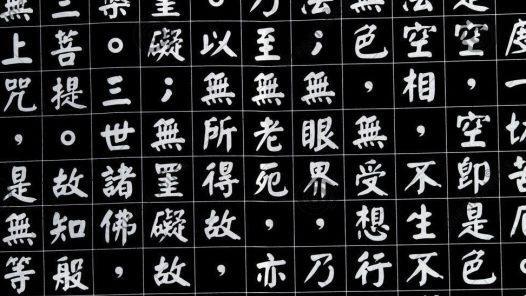 度一切苦厄。
是空，空即是色
法空相，不生不
無色，無受想行
法；無眼界，乃
乃至無老死，亦
。以無所得故，
罣礙；無罣礙故，
槃。三世諸佛，
三菩提。故知般
無上咒，是無等